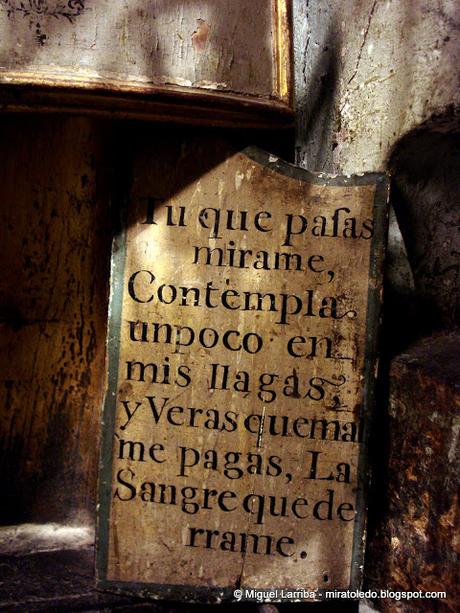 Tu que paſas
mirame,
Contèmpla.
unpoco en
mis llagas,
y Veras quemal
me pagas, La
Sangre quede
rrame.
© Miguel Larriba - miratoledo.blogspot.com